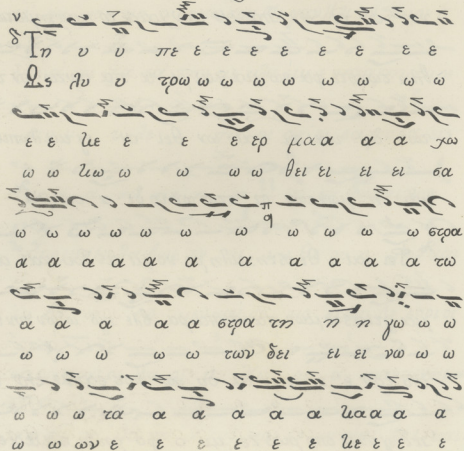 Τη υ υ πε ε ε ε ε ε ε ε ε
Ως λυ υ τρω ω ω ω ω ω ω ω ω
ε ε κε ε ε ε ερ μα α α α χω
ω ω κω ω ω ω ω θει ει ει ει σα
ω ω ω ω ω ω ω ω ω ω ω στρα
α α α α α α α α α α α τω
α α α α α στρα τη η η γω ω ω
ω ω ω ω ω των δει ει ει νω ω ω
ω ω ω τα α α α α α κα α α α
ω ω ων ε ε ε ε ε ε κε ε ε ε